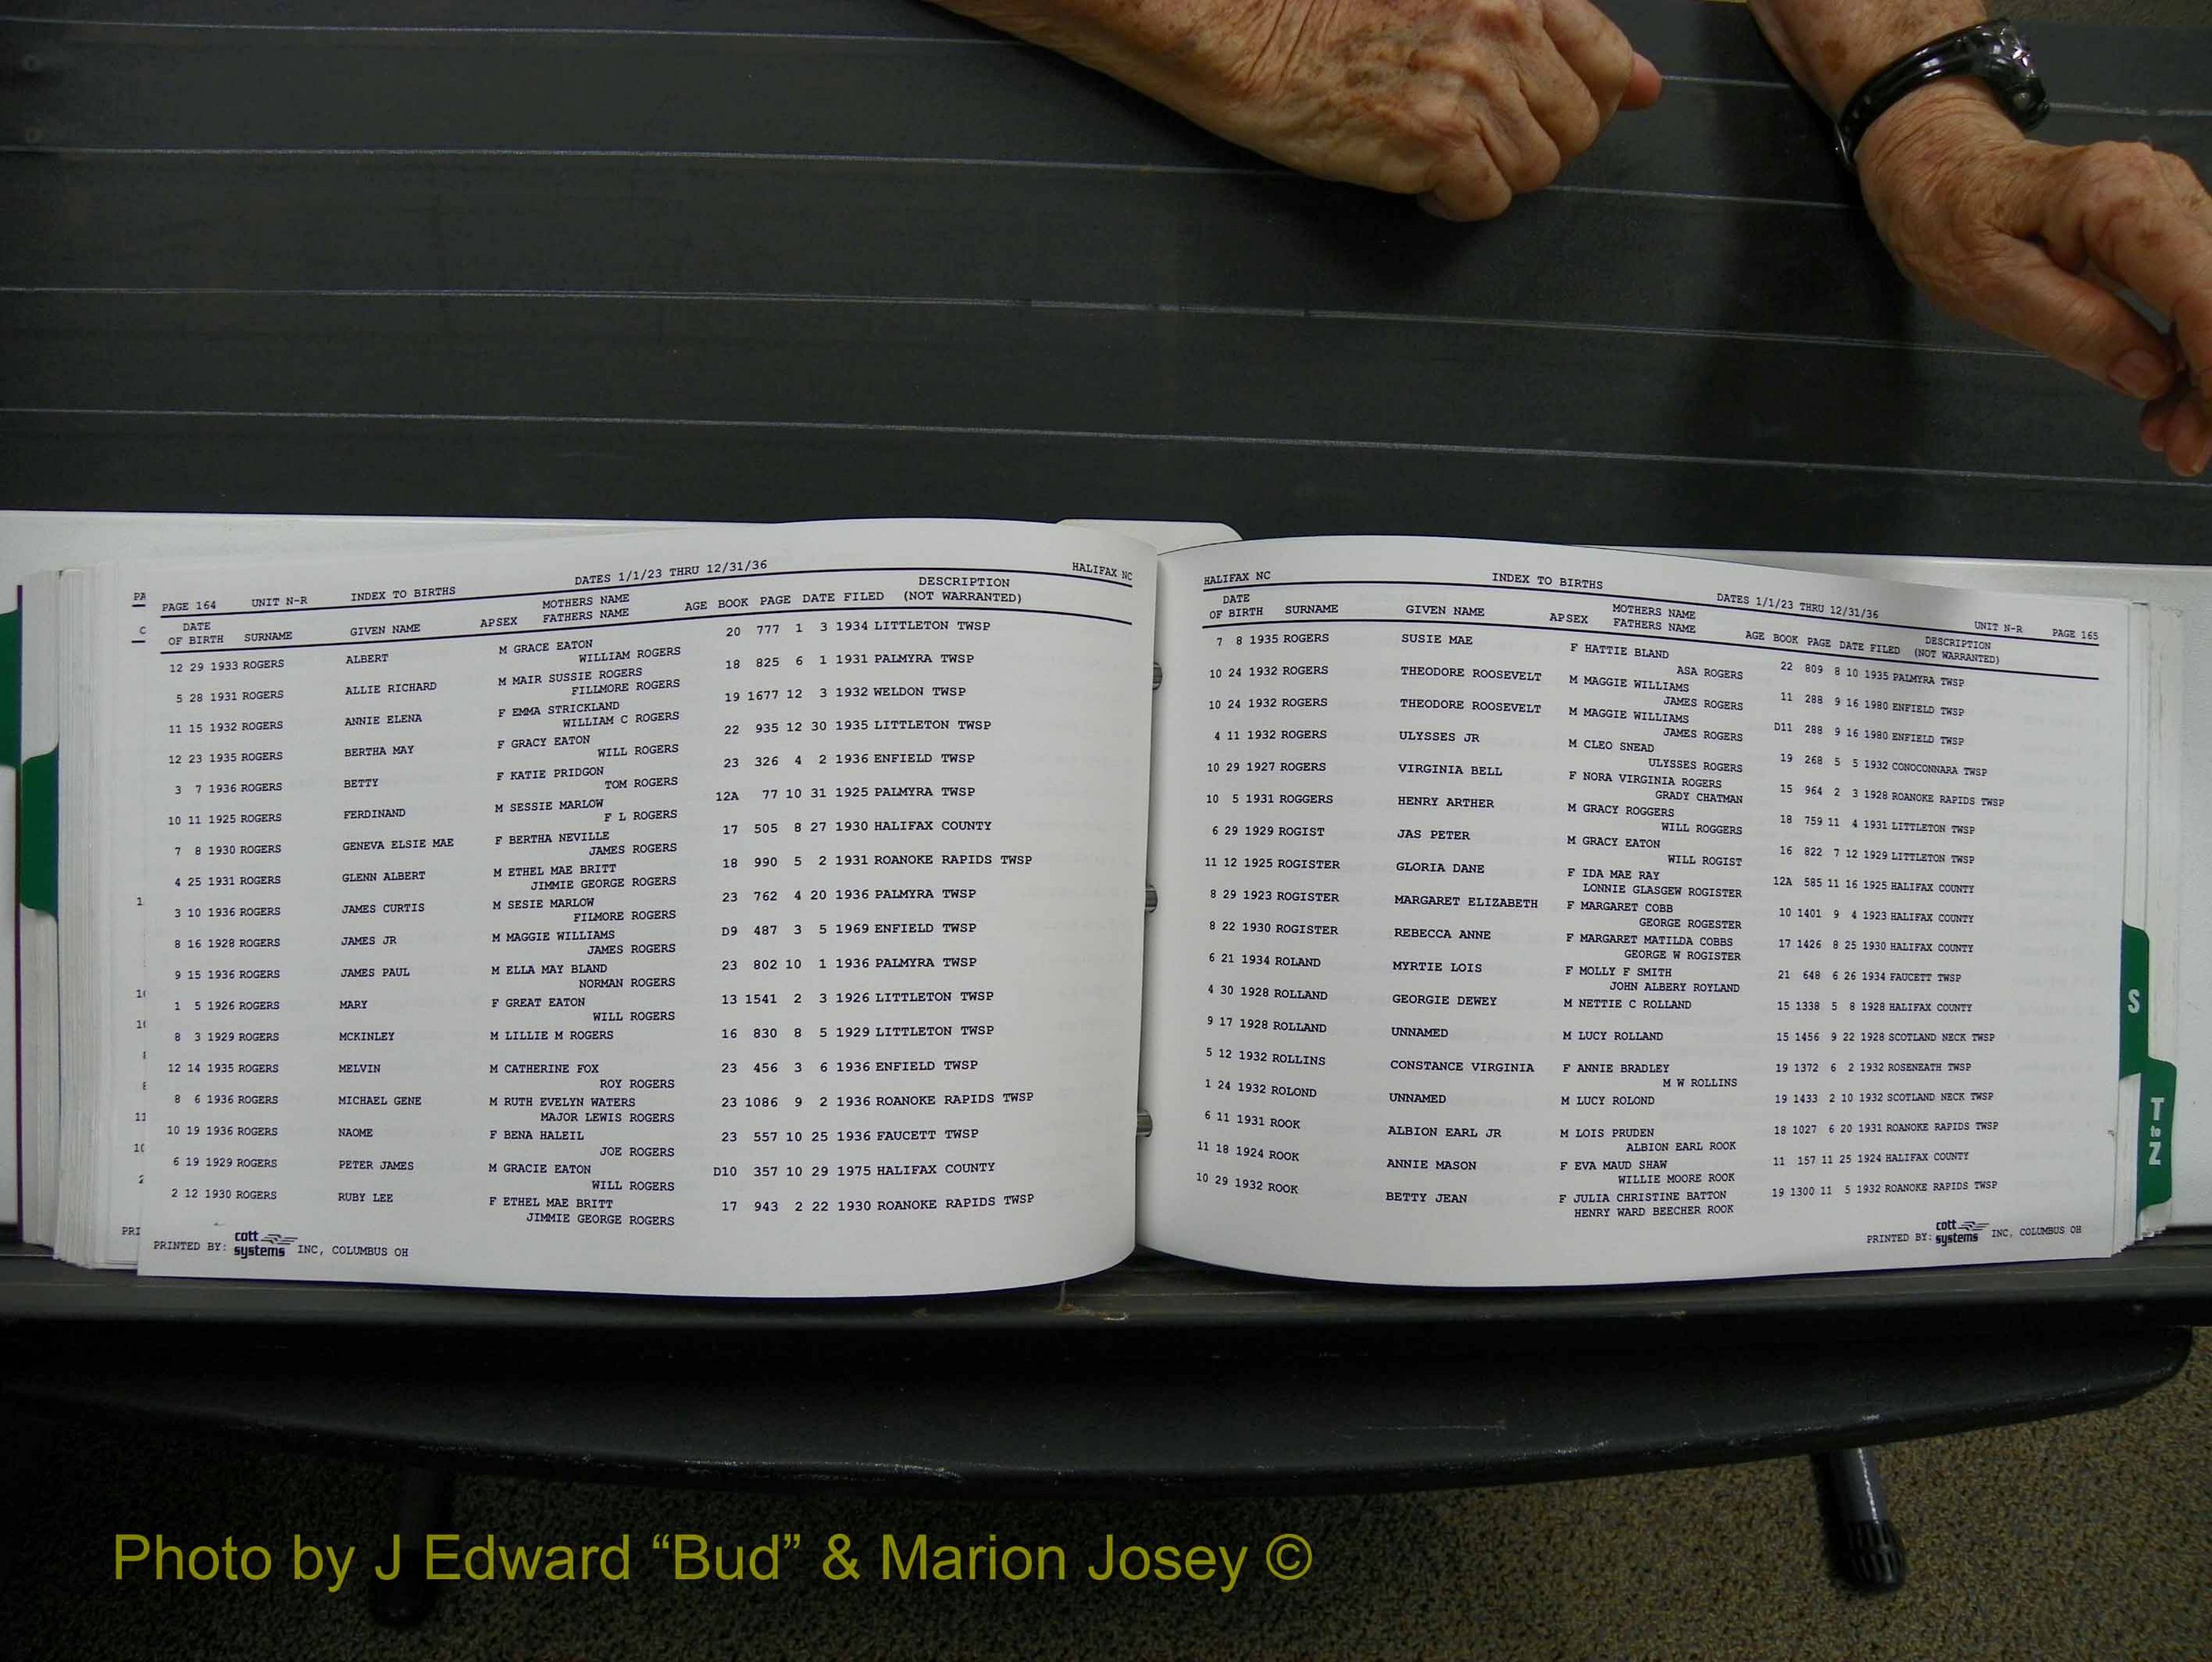 PAGE 164 UNIT N-R INDEX TO BIRTHS DATES 1/1/23 THRU 12/31/36 HALIFAX NC
DATE MOTHERS NAME DESCRIPTION
OF BIRTH SURNAME GIVEN NAME APSEX FATHERS NAME AGE BOOK PAGE DATE FILED (NOT WARRANTED)
12 29 1933 ROGERS ALBERT M GRACE EATON 20 777 1 3 1934 LITTLETON TWSP
WILLIAM ROGERS
5 28 1931 ROGERS ALLIE RICHARD M MAIR SUSSIE ROGERS 18 825 6 1 1931 PALMYRA TWSP
FILLMORE ROGERS
11 15 1932 ROGERS ANNIE ELENA F EMMA STRICKLAND 19 1677 12 3 1932 WELDON TWSP
WILLIAM C ROGERS
12 23 1935 ROGERS BERTHA MAY F GRACY EATON 22 935 12 30 1935 LITTLETON TWSP
WILL ROGERS
3 7 1936 ROGERS BETTY F KATIE PRIDGON 23 326 4 2 1936 ENFIELD TWSP
TOM ROGERS
10 11 1925 ROGERS FERDINAND M SESSIE MARLOW 12A 77 10 31 1925 PALMYRA TWSP
F L ROGERS
7 8 1930 ROGERS GENEVA ELSIE MAE F BERTHA NEVILLE 17 505 8 27 1930 HALIFAX COUNTY
JAMES ROGERS
4 25 1931 ROGERS GLENN ALBERT M ETHEL MAE BRITT 18 990 5 2 1931 ROANOKE RAPIDS TWSP
JIMMIE GEORGE ROGERS
3 10 1936 ROGERS JAMES CURTIS M SESIE MARLOW 23 762 4 20 1936 PALMYRA TWSP
FILMORE ROGERS
8 16 1928 ROGERS JAMES JR M MAGGIE WILLIAMS D9 487 3 5 1969 ENFIELD TWSP
JAMES ROGERS
9 15 1936 ROGERS JAMES PAUL M ELLA MAY BLAND 23 802 10 1 1936 PALMYRA TWSP
NORMAN ROGERS
1 5 1926 ROGERS MARY F GREAT EATON 13 1541 2 3 1926 LITTLETON TWSP
WILL ROGERS
8 3 1929 ROGERS MCKINLEY M LILLIE M ROGERS 16 830 8 5 1929 LITTLETON TWSP
12 14 1935 ROGERS MELVIN M CATHERINE FOX 23 456 3 6 1936 ENFIELD TWSP
ROY ROGERS
8 6 1936 ROGERS MICHAEL GENE M RUTH EVELYN WATERS 23 1086 9 2 1936 ROANOKE RAPIDS TWSP
MAJOR LEWIS ROGERS
10 19 1936 ROGERS NAOME F BENA HALEIL 23 557 10 25 1936 FAUCETT TWSP
JOE ROGERS
6 19 1929 ROGERS PETER JAMES M GRACIE EATON D10 357 10 29 1975 HALIFAX COUNTY
WILL ROGERS
2 12 1930 ROGERS RUBY LEE F ETHEL MAE BRITT 17 943 2 22 1930 ROANOKE RAPIDS TWSP
JIMMIE GEORGE ROGERS
PRINTED BY: cott systems INC, COLUMBUS OH
HALIFAX NC INDEX TO BIRTHS DATES 1/1/23 THRU 12/31/36 UNIT N-R PAGE 165
DATE MOTHERS NAME DESCRIPTION
OF BIRTH SURNAME GIVEN NAME APSEX FATHERS NAME AGE BOOK PAGE DATE FILED (NOT WARRANTED)
7 8 1935 ROGERS SUSIE MAE F HATTIE BLAND 22 809 8 10 1935 PALMYRA TWSP
ASA ROGERS
10 24 1932 ROGERS THEODORE ROOSEVELT M MAGGIE WILLIAMS 11 288 9 16 1980 ENFIELD TWSP
JAMES ROGERS
10 24 1932 ROGERS THEODORE ROOSEVELT M MAGGIE WILLIAMS D11 288 9 16 1980 ENFIELD TWSP
JAMES ROGERS
4 11 1932 ROGERS ULYSSES JR M CLEO SNEAD 19 268 5 5 1932 CONOCONNARA TWSP
ULYSSES ROGERS
10 29 1927 ROGERS VIRGINIA BELL F NORA VIRGINIA ROGERS 15 964 2 3 1928 ROANOKE RAPIDS TWSP
GRADY CHATMAN
10 5 1931 ROGGERS HENRY ARTHER M GRACY ROGGERS 18 759 11 4 1931 LITTLETON TWSP
WILL ROGGERS
6 29 1929 ROGIST JAS PETER M GRACY EATON 16 822 7 12 1929 LITTLETON TWSP
WILL ROGIST
11 12 1925 ROGISTER GLORIA DANE F IDA MAE RAY 12A 585 11 16 1925 HALIFAX COUNTY
LONNIE GLASGEW ROGISTER
8 29 1923 ROGISTER MARGARET ELIZABETH F MARGARET COBB 10 1401 9 4 1923 HALIFAX COUNTY
GEORGE ROGESTER
8 22 1930 ROGISTER REBECCA ANNE F MARGARET MATILDA COBBS 17 1426 8 25 1930 HALIFAX COUNTY
GEORGE W ROGISTER
6 21 1934 ROLAND MYRTIE LOIS F MOLLY F SMITH 21 648 6 26 1934 FAUCETT TWSP
JOHN ALBERY ROYLAND
4 30 1928 ROLLAND GEORGIE DEWEY M NETTIE C ROLLAND 15 1338 5 8 1928 HALIFAX COUNTY
9 17 1928 ROLLAND UNNAMED M LUCY ROLLAND 15 1456 9 22 1928 SCOTLAND NECK TWSP
5 12 1932 ROLLINS CONSTANCE VIRGINIA F ANNIE BRADLEY 19 1372 6 2 1932 ROSENEATH TWSP
M W ROLLINS
1 24 1932 ROLOND UNNAMED M LUCY ROLOND 19 1433 2 10 1932 SCOTLAND NECK TWSP
6 11 1931 ROOK ALBION EARL JR M LOIS PRUDEN 18 1027 6 20 1931 ROANOKE RAPIDS TWSP
ALBION EARL ROOK
11 18 1924 ROOK ANNIE MASON F EVA MAUD SHAW 11 157 11 25 1924 HALIFAX COUNTY
WILLIE MOORE ROOK
10 29 1932 ROOK BETTY JEAN F JULIA CHRISTINE BATTON 19 1300 11 5 1932 ROANOKE RAPIDS TWSP
HENRY WARD BEECHER ROOK
PRINTED BY: cott systems INC, COLUMBUS OH
S
T to Z
Photo by J Edward “Bud” & Marion Josey ©